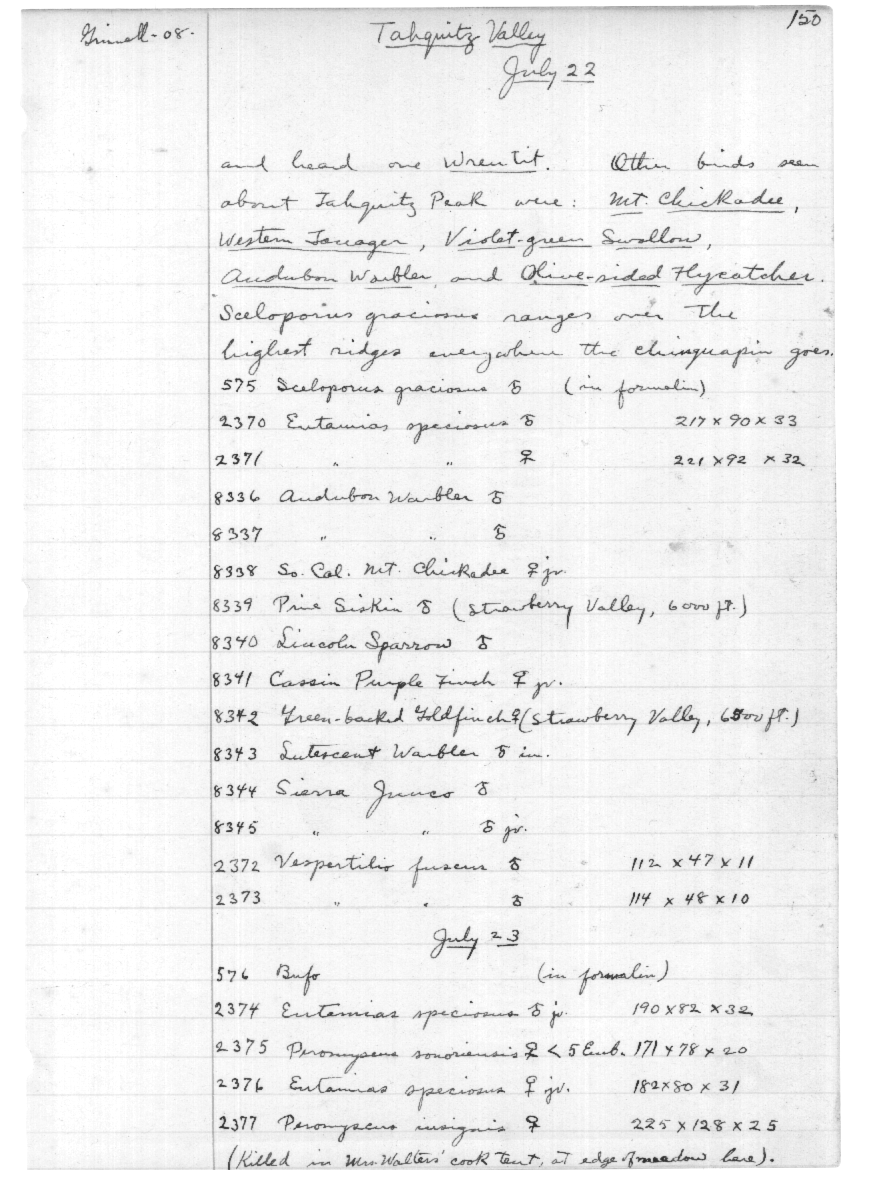 150
Grinnell-08.
Tahquitz Valley
July 22
and heard one Wrentit. Other birds seen
about Tahquitz Peak were: Mt. Chickadee,
Western Tanager, Violet-green Swallow,
Audubon Warbler, and Olive-sided Flycatcher.
Sceloporus graciosus ranges over the
highest ridges everywhere the chinquapin goes.
575 Sceloporus graciosus ♂ (in formalin)
2370 Eutamias speciosus ♂ 217 x 90 x 33
2371 " " ♀ 221 x 92 x 32
8336 Audubon Warbler ♂
8337 " " ♂
8338 So. Cal. Mt. Chickadee ♀ jv.
8339 Pine Siskin ♂ (Strawberry Valley, 6000 ft.)
8340 Lincoln Sparrow ♂
8341 Cassin Purple Finch ♀ jv.
8342 Green-backed Goldfinch ♀ (Strawberry Valley, 6500 ft.)
8343 Lutescent Warbler ♂ im.
8344 Sierra Junco ♂
8345 " " ♂ jv.
2372 Vespertilio fuscus ♂ 112 x 47 x 11
2373 " " ♂ 114 x 48 x 10
July 23
576 Bufo (in formalin)
2374 Eutamias speciosus ♂ jv. 190 x 82 x 32
2375 Peromyscus sonoriensis ♀ < 5 Emb. 171 x 78 x 20
2376 Eutamias speciosus ♀ jv. 182 x 80 x 31
2377 Peromyscus insignis ♀ 225 x 128 x 25
(Killed in Mrs. Walters' cook tent, at edge of meadow here).